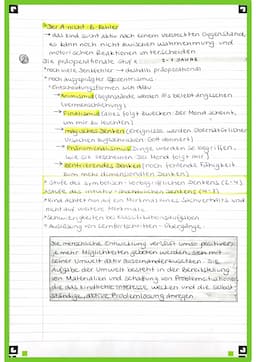 Der A-nicht-B-Fehler
→ das Kind sucht aktiv nach einem versteckten Gegenstand,
es kann noch nicht zwischen Wahrnehmung und
motorischen Reaktionen unterscheiden
Die präoperationale Stufe 2-7 JAHRE
noch viele Denkfehler → deshalb präoperational
noch ausgeprägter Egozentrismus
Entscheidungsformen sich dabei
→ Animismus (Gegenstände werden als belebt angesehen
Vermenschlichung)
→ Finalismus (alles folgt Zwecken. Der Mond scheint,
um mir zu leuchten)
→ magisches Denken (Ereignisse werden übernatürlichen
→ Phänomenalismus (Dinge werden so begriffen,
wie sie erscheinen. Der Mond folgt mir)
→ zentrierendes Denken (noch fehlende Fähigkeit
zum mehrdimensionalen Denken)
Stufe des symbolisch-vorbegrifflichen Denkens (2-4)
Stufe des intuitiv-anschaulichen Denkens (4-7)
Kind achtet nur auf ein Merkmal eines Sachverhalts und
nicht auf weitere Merkmale
Schwierigkeiten bei Klassifikationsaufgaben
Auslösung von Lernfortschritten - Übergänge:
Die menschliche Entwicklung verläuft umso positiver,
je mehr Möglichkeiten geboten werden, sich mit
seiner Umwelt aktiv auseinanderzusetzen. Die
Aufgabe der Umwelt besteht in der Bereitstellung
von Materialien und Schaffung von Problemsituationen,
die das kindliche Interesse wecken und die selbst-
ständige, aktive Problemlösung anregen.